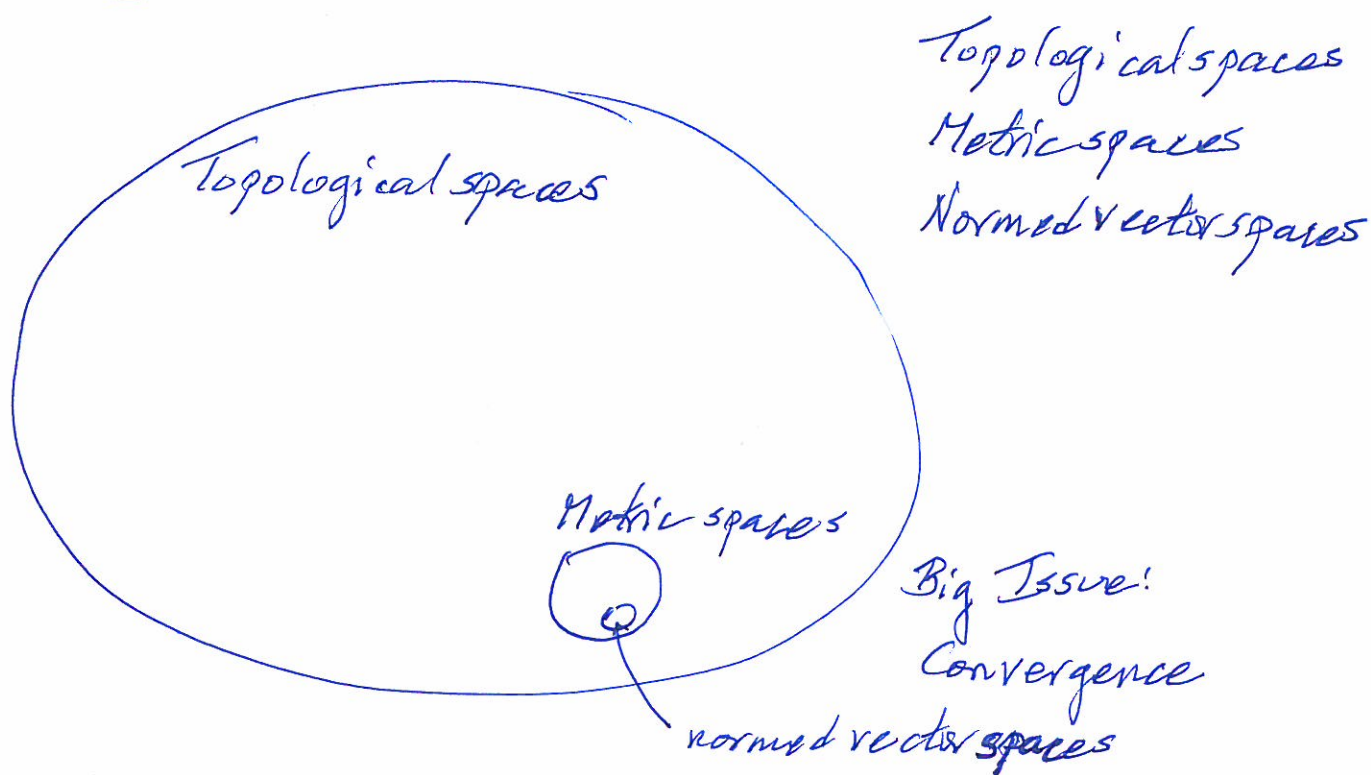 Topological spaces
Metric spaces
Normed vector spaces
Topological spaces
Metric spaces
Big Issue:
Convergence
normed vector spaces